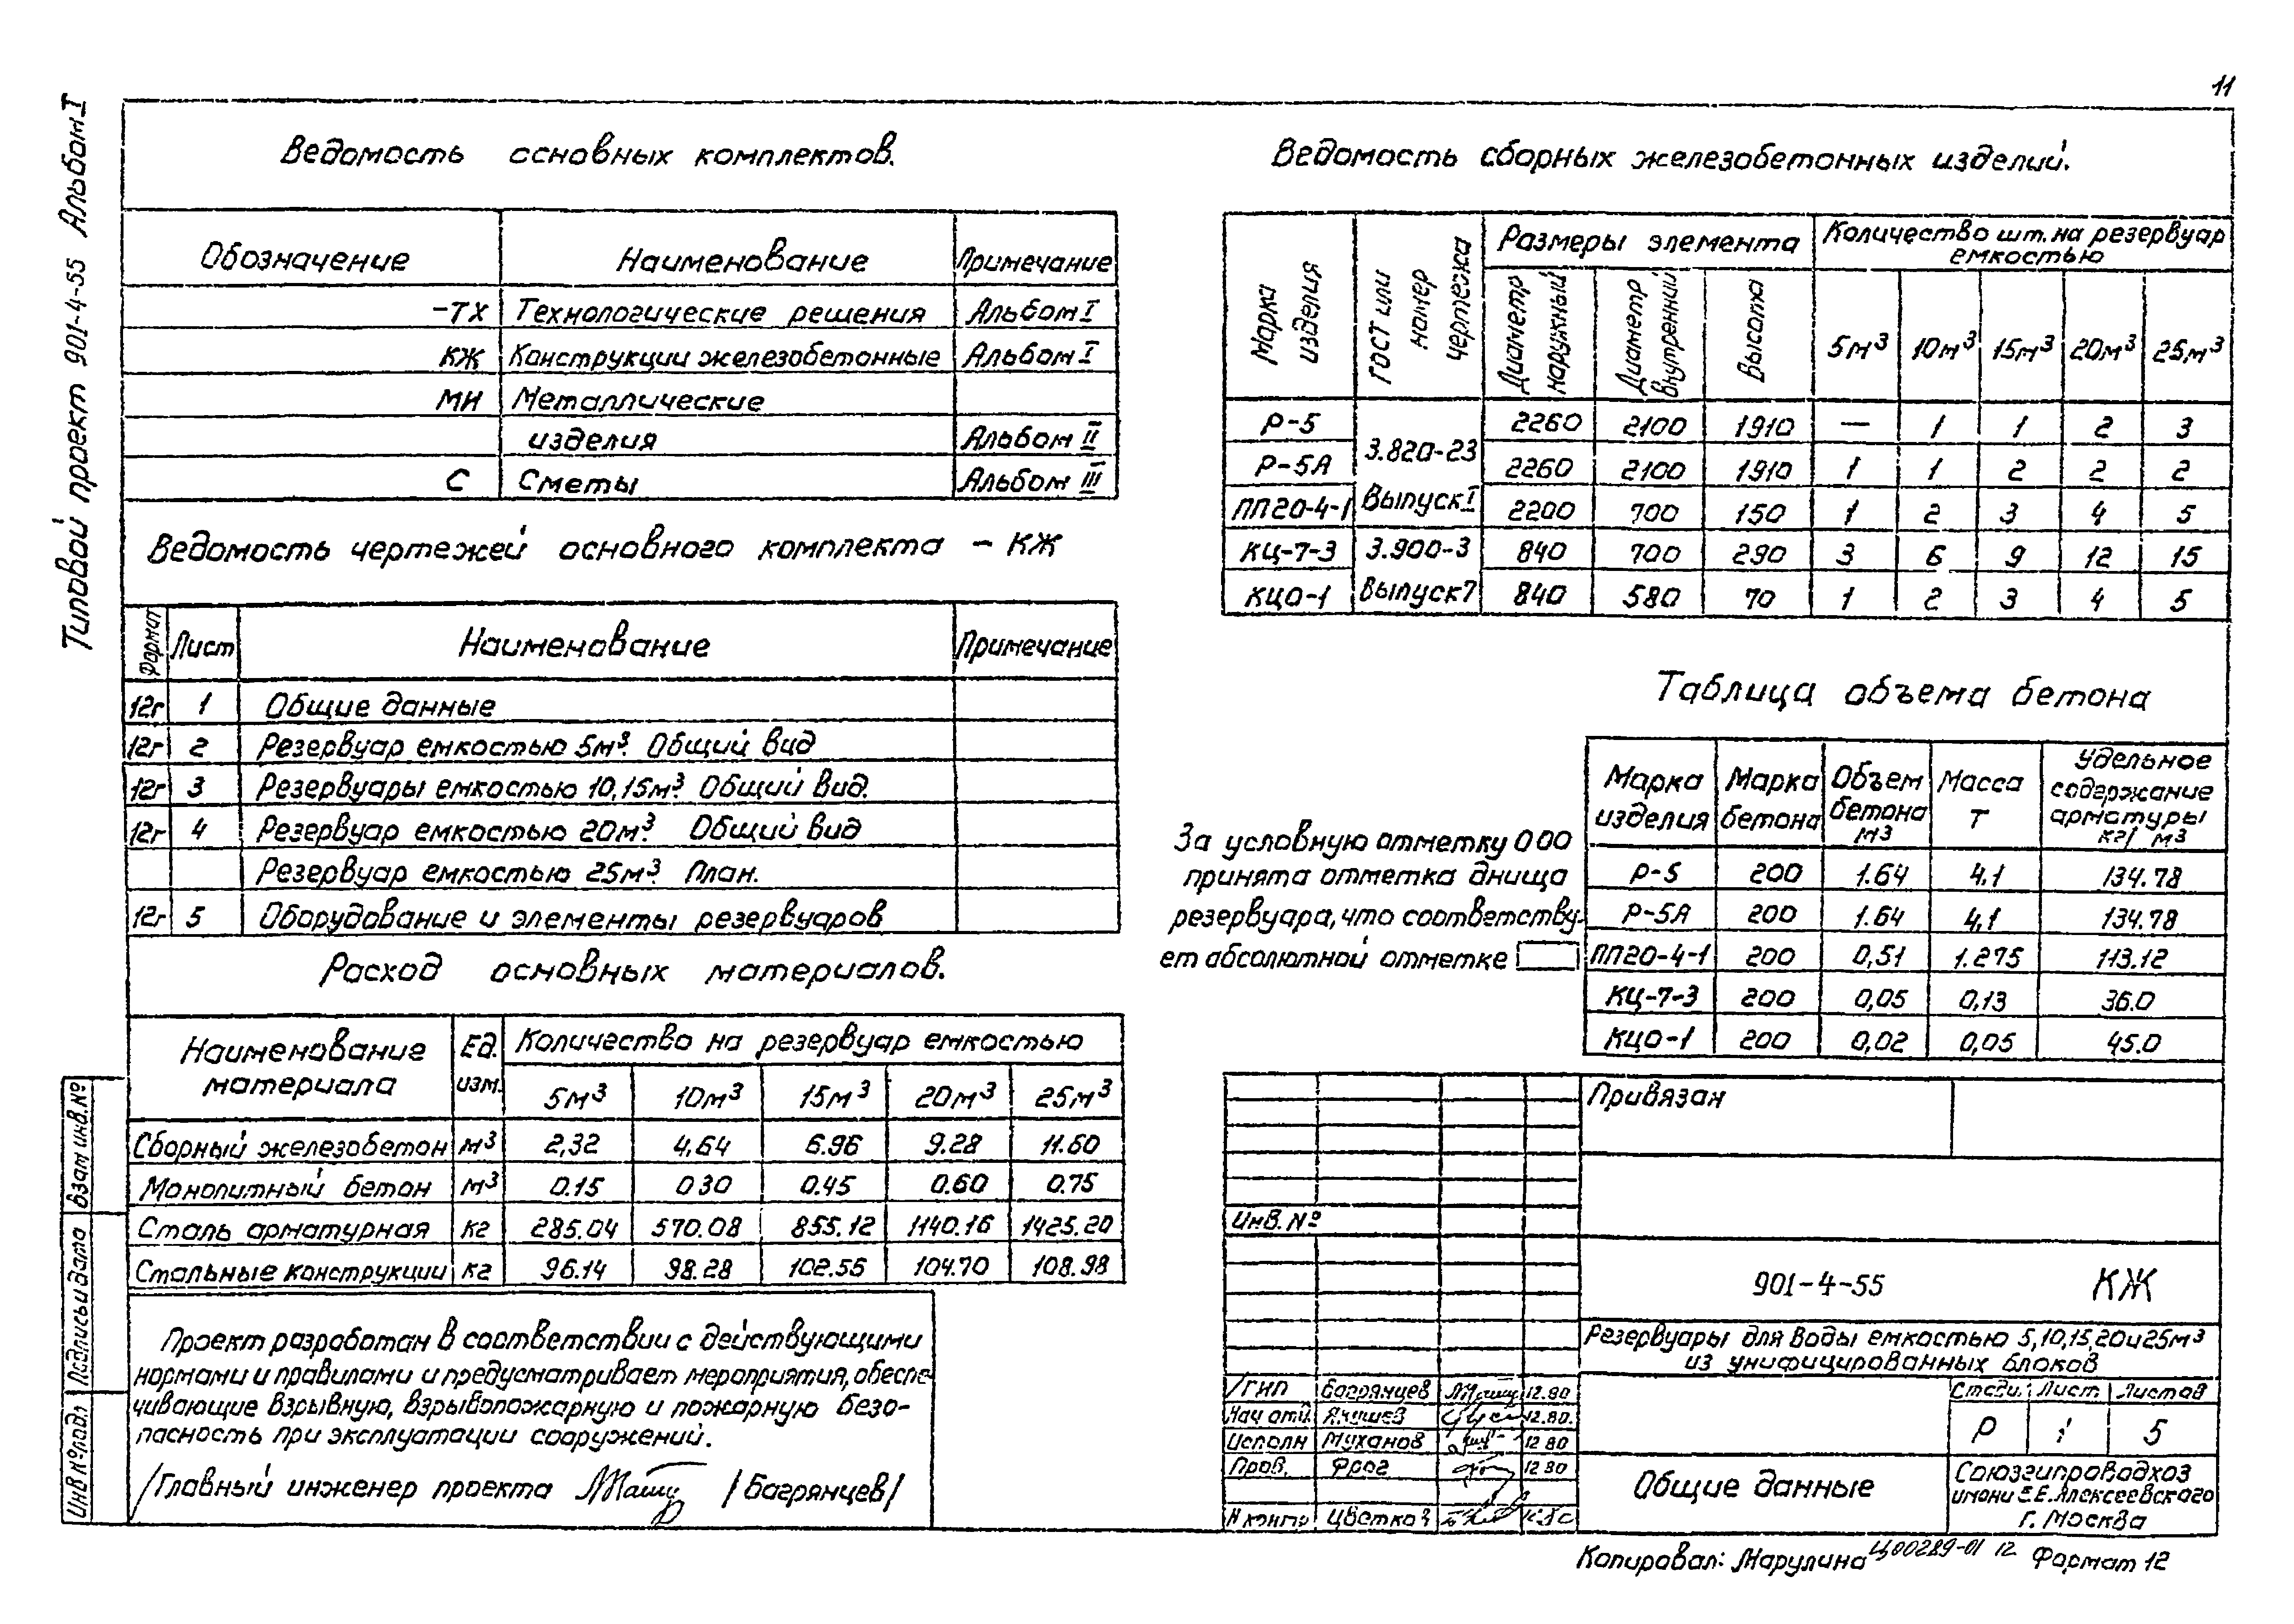 11
Типовой проект 901-4-55 Альбом I
Ведомость основных комплектов.
Обозначение Наименование Примечание
-ТХ Технологические решения Альбом I
КЖ Конструкции железобетонные Альбом I
МИ Металлические
изделия Альбом II
С Сметы Альбом III
Ведомость чертежей основного комплекта - КЖ
Формат Лист Наименование Примечание
12г 1 Общие данные
12г 2 Резервуар емкостью 5м³. Общий вид
12г 3 Резервуары емкостью 10,15м³. Общий вид.
12г 4 Резервуар емкостью 20м³. Общий вид
Резервуар емкостью 25м³. План.
12г 5 Оборудование и элементы резервуаров
Расход основных материалов.
Наименование материала Ед. изм. Количество на резервуар емкостью
5м³ 10м³ 15м³ 20м³ 25м³
Сборный железобетон м³ 2,32 4,64 6.96 9.28 11.60
Монолитный бетон м³ 0.15 0 30 0.45 0.60 0.75
Сталь арматурная кг 285.04 570.08 855.12 1140.16 1425.20
Стальные конструкции кг 96.14 98.28 102.56 104.70 108.98
Проект разработан в соответствии с действующими
нормами и правилами и предусматривает мероприятия, обеспе-
чивающие взрывную, взрывопожарную и пожарную безо-
пасность при эксплуатации сооружений.
/Главный инженер проекта /Багрянцев/
Взам инв.№
Подпись и дата
Инв № подл
Ведомость сборных железобетонных изделий.
Марка изделия ГОСТ или номер чертежа Размеры элемента Количество шт. на резервуар
емкостью
Диаметр наружный Диаметр внутренний Высота 5м³ 10м³ 15м³ 20м³ 25м³
Р-5 2260 2100 1910 — 1 1 2 3
3.820-23
Р-5А 2260 2100 1910 1 1 2 2 2
ПП20-4-1 Выпуск I 2200 700 150 1 2 3 4 5
КЦ-7-3 3.900-3 840 700 290 3 6 9 12 15
КЦО-1 Выпуск 7 840 580 70 1 2 3 4 5
Таблица объема бетона
Марка изделия Марка бетона Объем бетона м3 Масса Т Удельное содержание арматуры кг/ м3
Р-5 200 1.64 4.1 134.78
Р-5А 200 1.64 4,1 134.78
ПП20-4-1 200 0,51 1.275 113.12
КЦ-7-3 200 0,05 0,13 36.0
КЦО-1 200 0,02 0,05 45.0
За условную отметку 0 00
принята отметка днища
резервуара, что соответству-
ет абсолютной отметке
Привязан
Инв. №
901-4-55 КЖ
Резервуары для воды емкостью 5,10,15,20и25м³
из унифицированных блоков
/ГИП Багрянцев 12.80
Нач отд. Якушев 12.80.
Исполн Муханов 12 80
Пров. Фрог 12 80
Н контр Цветков
Стади. Лист. Листов
Р 1 5
Общие данные
Союзгипроводхоз
имени Е.Е.Алексеевского
г. Москва
Копировал: Марулина Ц00289-01 12 Формат 12